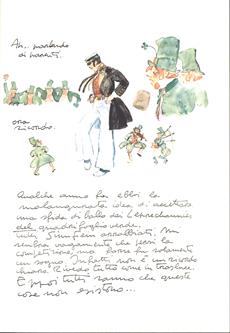 Ah.. parlando
di parenti.
ora
ricordo.
Qualche anno fa ebbi la
malaugurata idea di accettare
una sfida di ballo dai Leprechaunies
del quadrifoglio verde.
tutti Sinnfein arrabbiati. Mi
sembra vagamente che persi la
competizione, ma forse fu solamente
un sogno. Infatti non è un ricordo
chiaro. Rivedo tutto come in trasluce.
E poi tutti sanno che queste
cose non esistono...